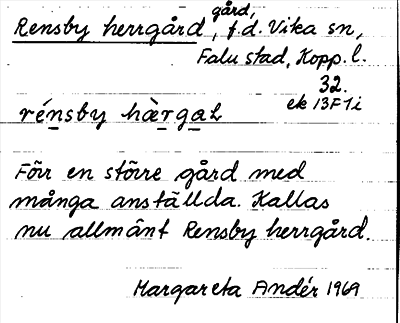 Rensby herrgård, gård, f.d. Vika sn,
Falu stad, Kopp. l.
32.
ek 13F1i
rénsby hæ̀rgaḷ
Förr en större gård med
många anställda. Kallas
nu allmänt Rensby herrgård.
Margareta Andér 1969